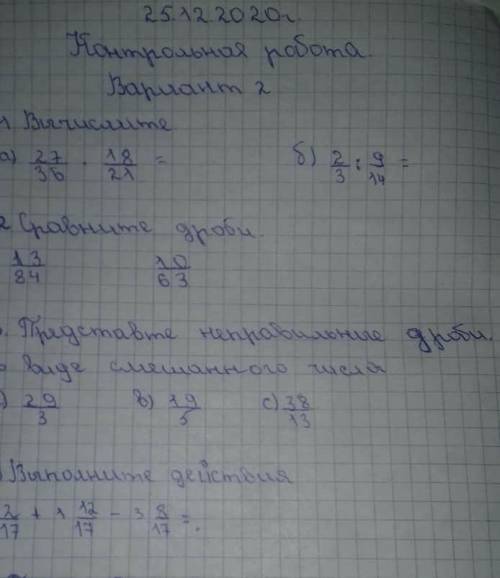 25.12.2020г.
Контрольная работа.
Вариант 2
1. Вычислите
а) 27/36 · 18/21 =    б) 2/3 : 9/14 =
2. Сравните дроби.
13/84    10/63
. Представте неправильные дроби.
виде смешанного числа
) 29/3    в) 19/5    с) 38/13
Выполните действия
2/17 + 1 12/17 - 3 8/17 = .